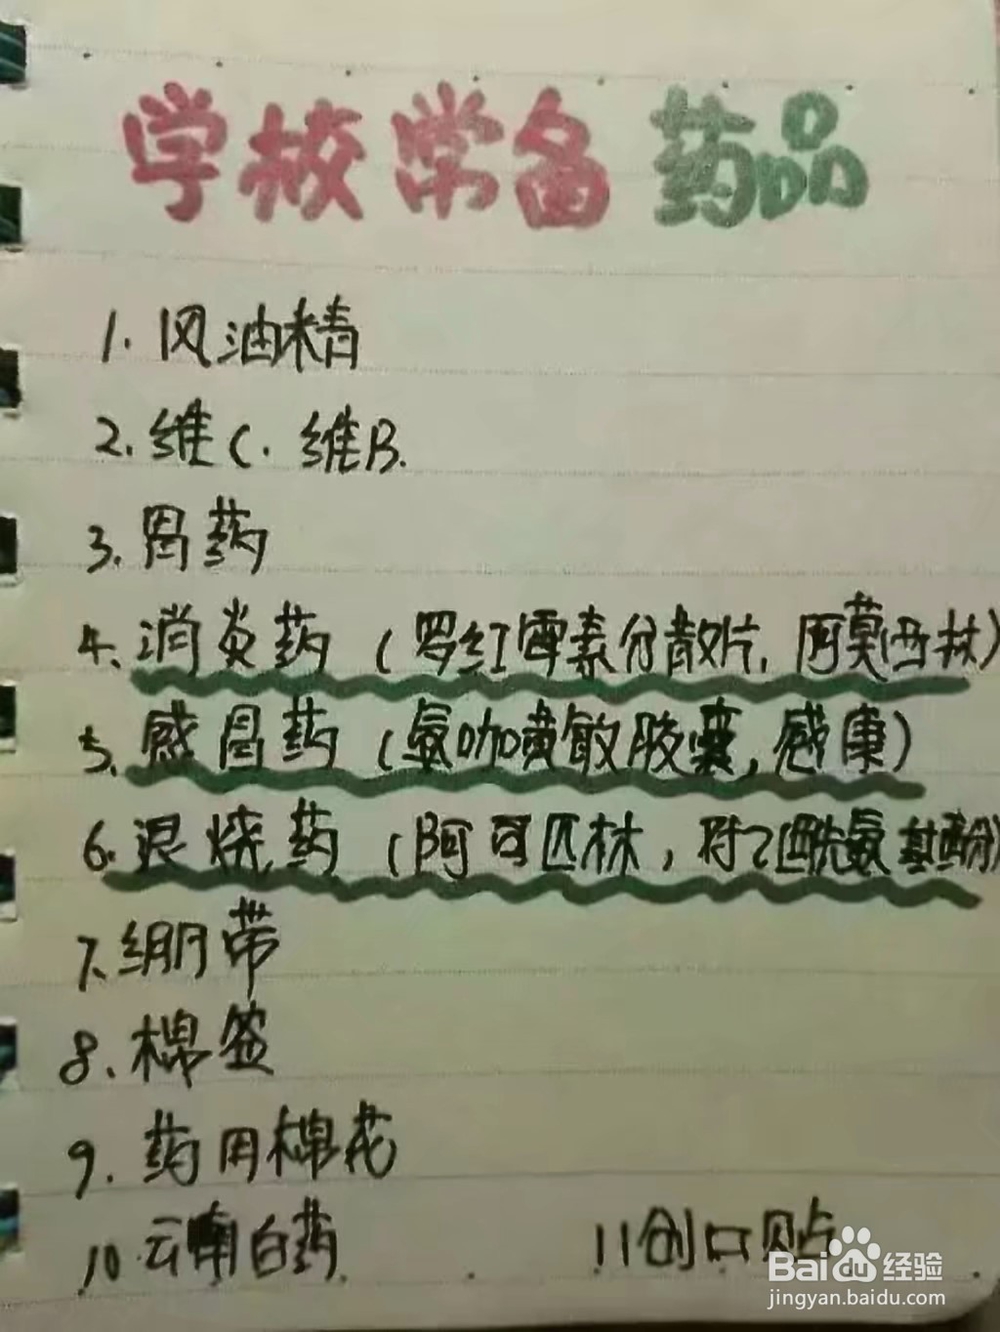 学校常备药品
1. 风油精
2. 维C. 维B.
3. 胃药
4. 消炎药（罗红霉素分散片, 阿莫西林）
5. 感冒药（氨咖黄敏胶囊, 感康）
6. 退烧药（阿司匹林, 对乙酰氨基酚）
7. 绷带
8. 棉签
9. 药用棉花
10 云南白药. 11创口贴
Baidu经验
jingyan.baidu.com